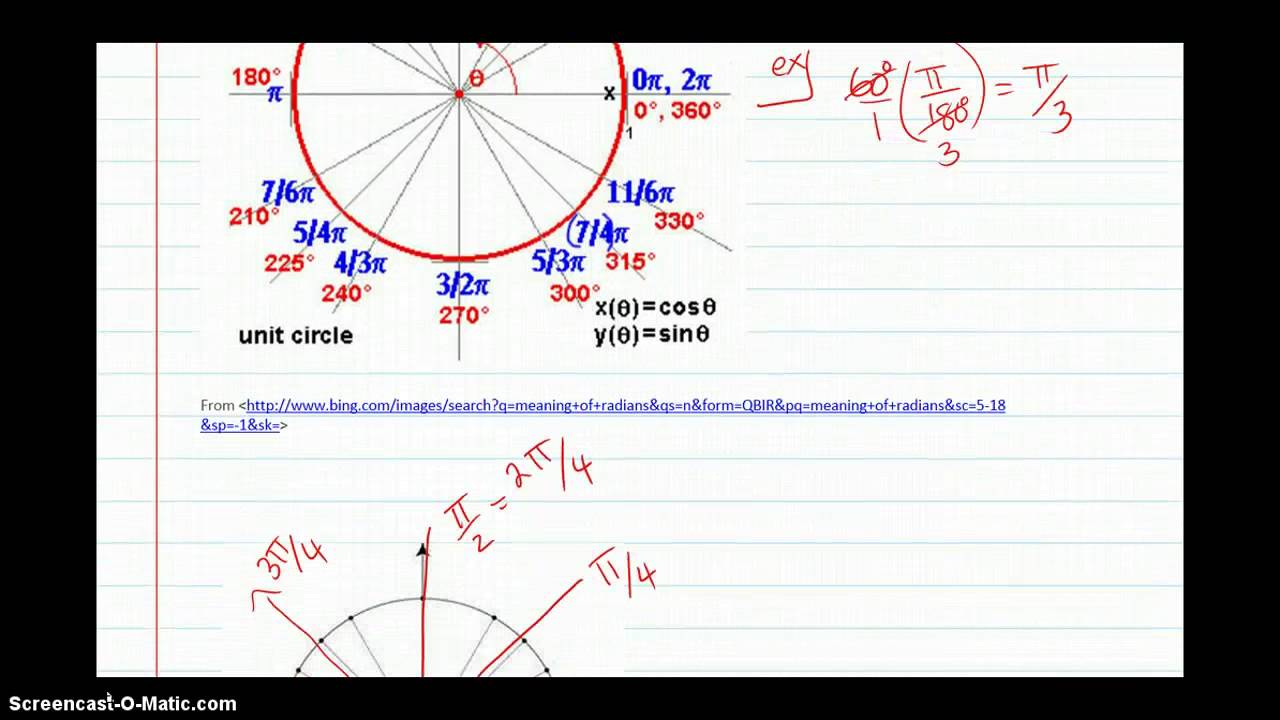 180°
π
θ
x
0π, 2π
0°, 360°
1
7/6π
210°
5/4π
225°
4/3π
240°
3/2π
270°
5/3π
300°
(7/4)π
315°
11/6π
330°
x(θ)=cosθ
y(θ)=sinθ
unit circle
ex
60°/1 (π/180°) = π/3
3
From <http://www.bing.com/images/search?q=meaning+of+radians&qs=n&form=QBIR&pq=meaning+of+radians&sc=5-18
&sp=-1&sk=>
π/2 = 2π/4
3π/4
π/4
Screencast-O-Matic.com